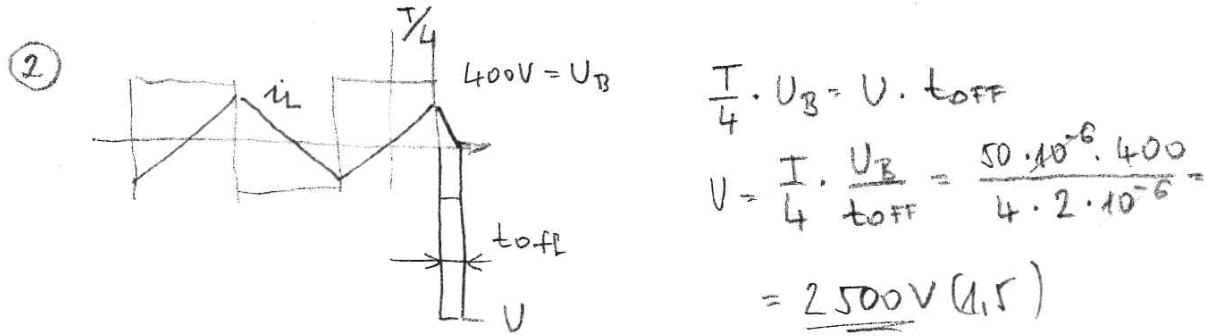 ②
T/4
i_L
400V = U_B
t_off
U
T/4 · U_B = U · t_OFF
U = T/4 · U_B/t_OFF = 50·10^-6 · 400 / 4 · 2 · 10^-6 =
= 2500V (1,5)